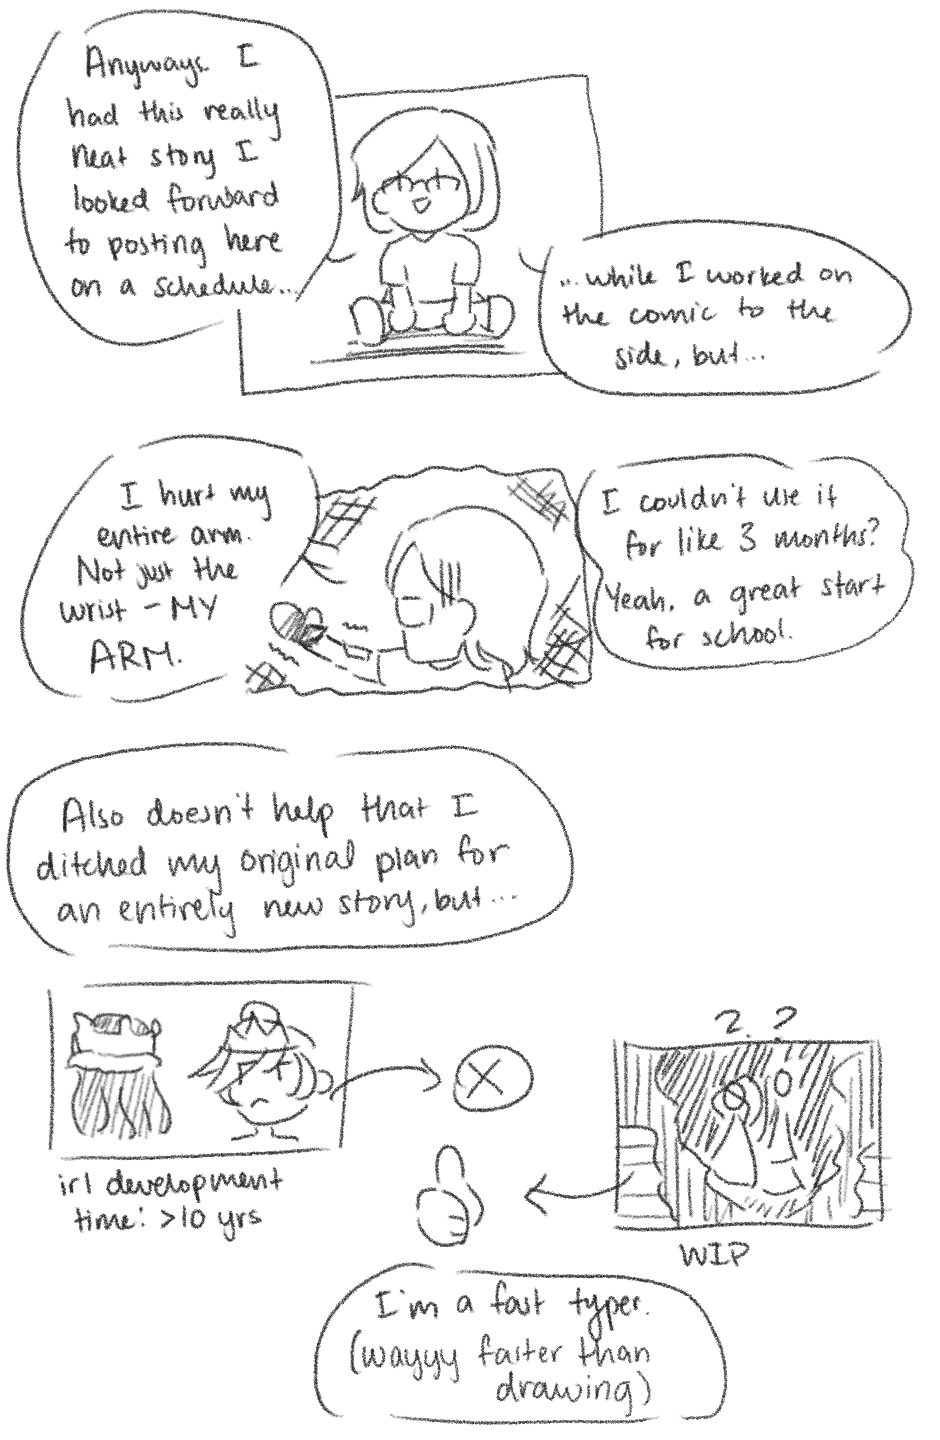 Anyways I
had this really
neat story I
looked forward
to posting here
on a schedule...
...while I worked on
the comic to the
side, but...
I hurt my
entire arm.
Not just the
wrist - MY
ARM.
I couldn't use it
for like 3 months?
Yeah, a great start
for school.
Also doesn't help that I
ditched my original plan for
an entirely new story, but...
? ?
irl development
time: >10 yrs
WIP
I'm a fast typer.
(wayyy faster than
drawing)